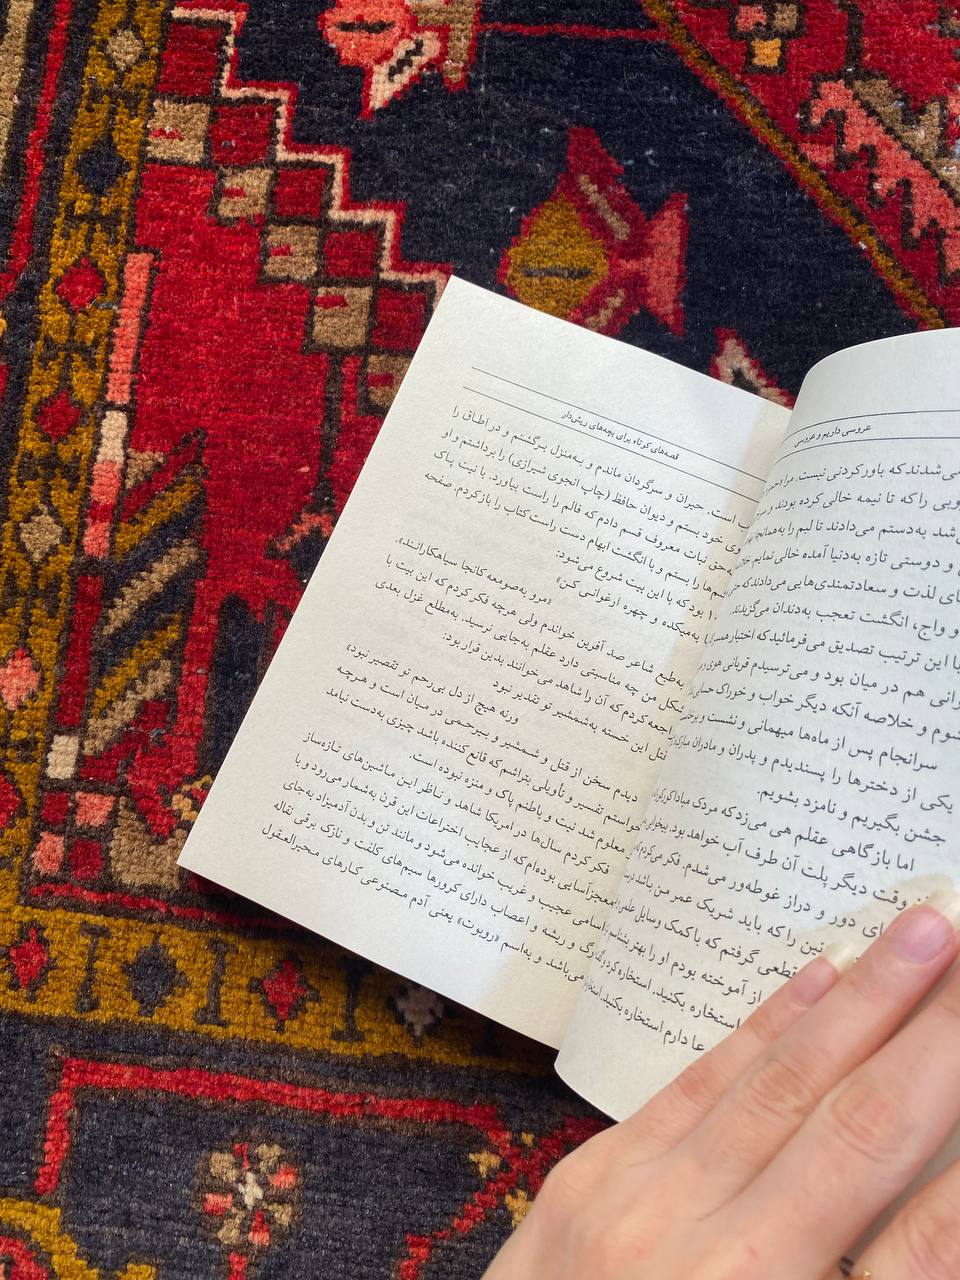 عروسی داریم و عروسی
می‌شدند که باورکردنی نیست. مرا
وبی را که تا نیمه خالی کرده بودند و
شد به‌دستم می‌دادند تا لبم را به‌همانجا
و دوستی تازه به‌دنیا آمده خالی نمایم.
های لذت و سعادتمندی‌هایی می‌دادند که
و واج، انگشت تعجب به‌دندان می‌گزیدند.
با این ترتیب تصدیق می‌فرمائید که اختیار
رانی هم در میان بود و می‌ترسیدم قربانی هوی و
شوم و خلاصه آنکه دیگر خواب و خوراک
سرانجام پس از ماه‌ها میهمانی و نشست و
یکی از دخترها را پسندیدم و پدران و مادران
جشن بگیریم و نامزد بشویم.
اما بازگاهی عقلم هی می‌زد که مردک مبادا
وقت دیگر پلت آن طرف آب خواهد بود.
ای دور و دراز غوطه‌ور می‌شدم. فکر می‌کردم
نین را که باید شریک عمر من باشد
قطعی گرفتم که با کمک وسایل علمی
از آموخته بودم او را بهتر بشناسم.
استخاره بکنید. استخاره کردم
عا دارم استخاره بکنید.
قصه‌های کوتاه برای بچه‌های ریش‌دار
است. حیران و سرگردان ماندم و به‌منزل برگشتم و در اطاق را
روی خود بستم و دیوان حافظ (چاپ انجوی شیرازی) را برداشتم و او
به‌حق ابیات معروف قسم دادم که فالم را راست بیاورد. با نیت پاک
ها را بستم و با انگشت ابهام دست راست کتاب را بازکردم، صفحه
بود که با این بیت شروع می‌شود:
«مرو به‌صومعه کانجا سیاهکارانند».
به‌میکده و چهره ارغوانی کن»
به‌طبع شاعر صد آفرین خواندم ولی هرچه فکر کردم که این بیت با
شکل من چه مناسبتی دارد عقلم به‌جایی نرسید. به‌مطلع غزل بعدی
راجعه کردم که آن را شاهد می‌خوانند بدین قرار بود:
قتل این خسته به‌شمشیر تو تقدیر نبود
ورنه هیچ از دل بی‌رحم تو تقصیر نبود»
دیدم سخن از قتل و شمشیر و بیرحمی در میان است و هرچه
خواستم تفسیر و تأویلی بتراشم که قانع کننده باشد چیزی به‌دست نیامد
معلوم شد نیت و باطنم پاک و منزه نبوده است.
فکر کردم سال‌ها در امریکا شاهد و ناظر این ماشین‌های تازه‌ساز
معجزآسایی بوده‌ام که از عجایب اختراعات این قرن به‌شمار می‌رود و با
اسامی عجیب و غریب خوانده می‌شود و مانند تن و بدن آدمیزاد به‌جای
رگ و ریشه و اعصاب دارای کرورها سیم‌های کلفت و نازک برقی نقاله
می‌باشد و به‌اسم «روبوت» یعنی آدم مصنوعی کارهای محیرالعقول